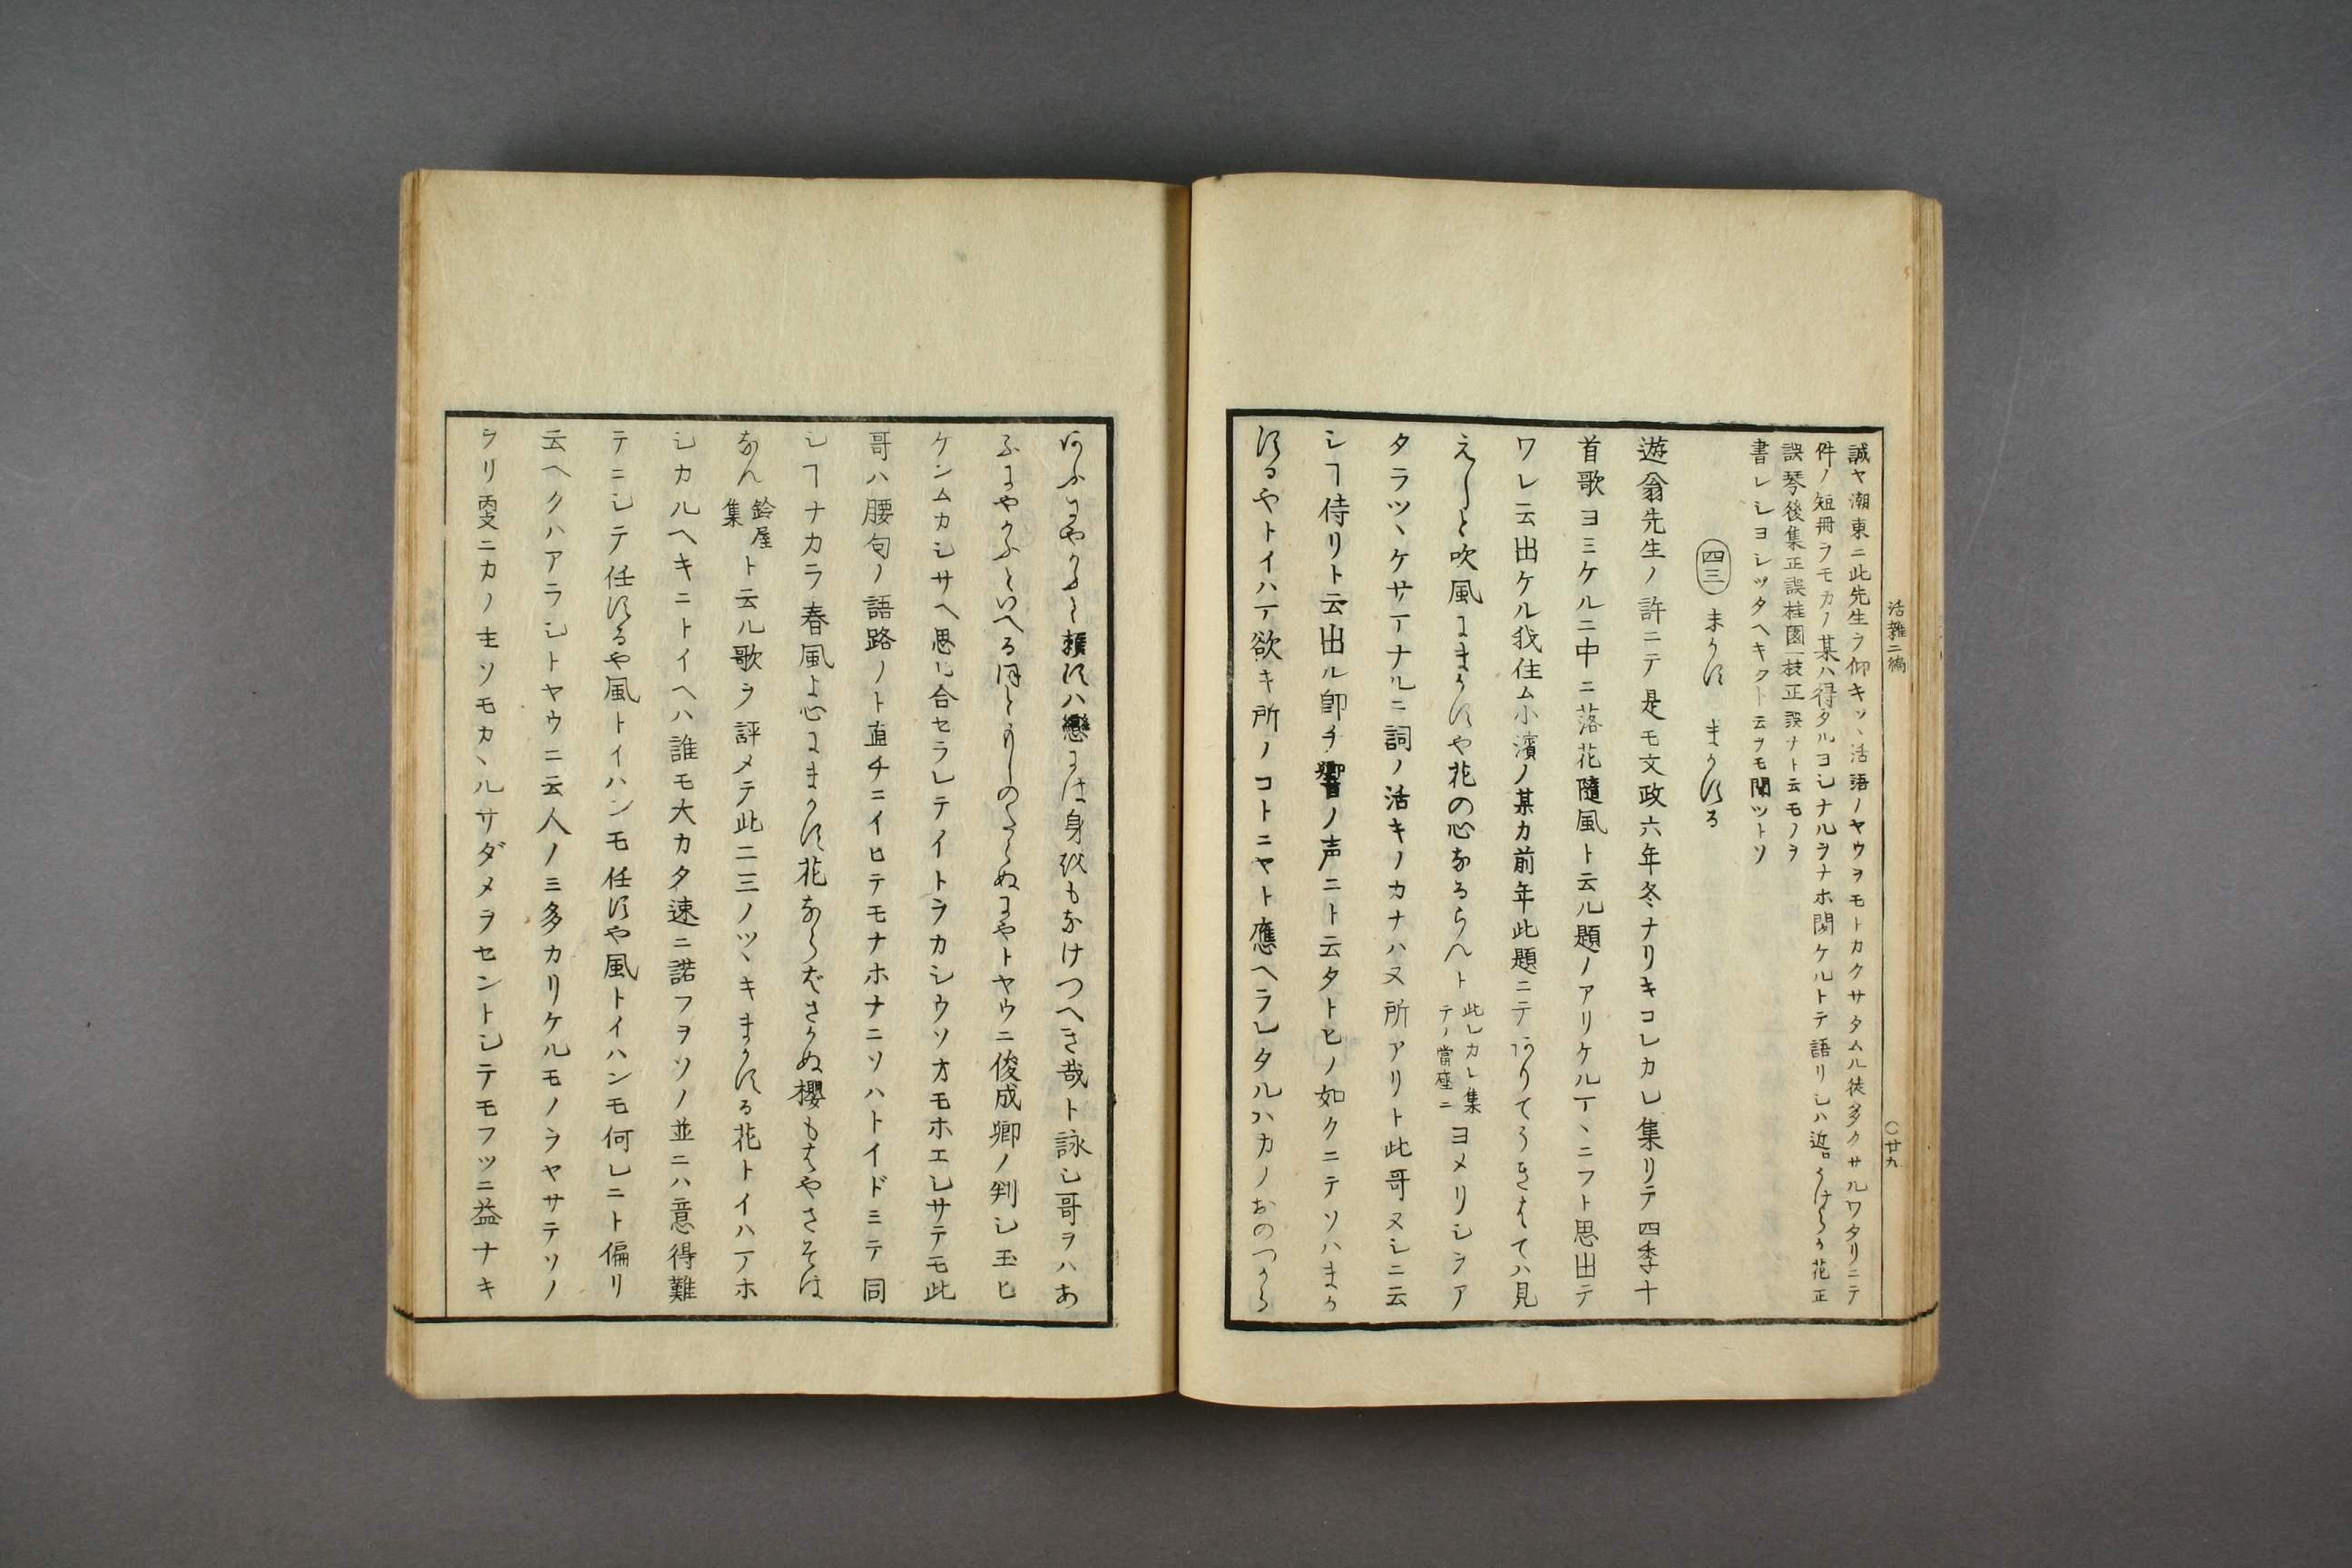 活雜二編
〇廿九
誠ヤ潮東ニ此先生ヲ仰キツヽ活語ノヤウヲモトカクサタムル徒多クサルワタリニテ
件ノ短冊ヲモカノ某ハ得タルヨシナルヲナホ聞ケルトテ語リシハ近ロうけらか花正
誤琴後集正誤桂園一枝正誤ナト云モノヲ
書レシヨシツタヘキクト云ヲモ聞ツトソ
四三 まかす まかする
遊翁先生ノ許ニテ是モ文政六年冬ナリキコレカレ集リテ四季十
首歌ヨミケルニ中ニ落花隨風ト云ル題ノアリケルヿヽニフト思出テ
ワレ云出ケル我住ム小濱ノ某カ前年此題ニテありてうきはてハ見
えしと吹風にまかすや花の心なるらんト 此レカレ集
テノ當座ニ ヨメリシヲア
タラツヽケサヿナルニ詞ノ活キノカナハヌ所アリト此哥ヌシニ云
シヿ侍リト云出ル卽チ響ノ声ニト云タトヒノ如クニテソハまか
するやトイハヿ欲キ所ノコトニヤト應ヘラレタルハカノおのつから
あふにやかふと頼すハ戀には身越もなけつへき哉ト詠シ哥ヲハあ
ふにやかふといへるほとりしのたらぬにやトヤウニ俊成卿ノ判シ玉ヒ
ケンムカシサヘ思ヒ合セラレテイトヲカシウソオモホエシサテモ此
哥ハ腰句ノ語路ノト直チニイヒテモナホナニソハトイドミテ同
シヿナカラ春風よ心にまかす花ならばさかぬ櫻もはやさそは
なん 鈴屋
集 ト云ル歌ヲ評メテ此二三ノツヽキまかする花トイハヿホ
シカルヘキニトイヘハ誰モ大カタ速ニ諾フヲソノ並ニハ意得難
テニシテ任するや風トイハンモ任すや風トイハンモ何レニト偏リ
云ヘクハアラシトヤウニ云人ノミ多カリケルモノヲヤサテソノ
ヲリ耍ニカノ主ソモカヽルサダメヲセントシテモフツニ益ナキ